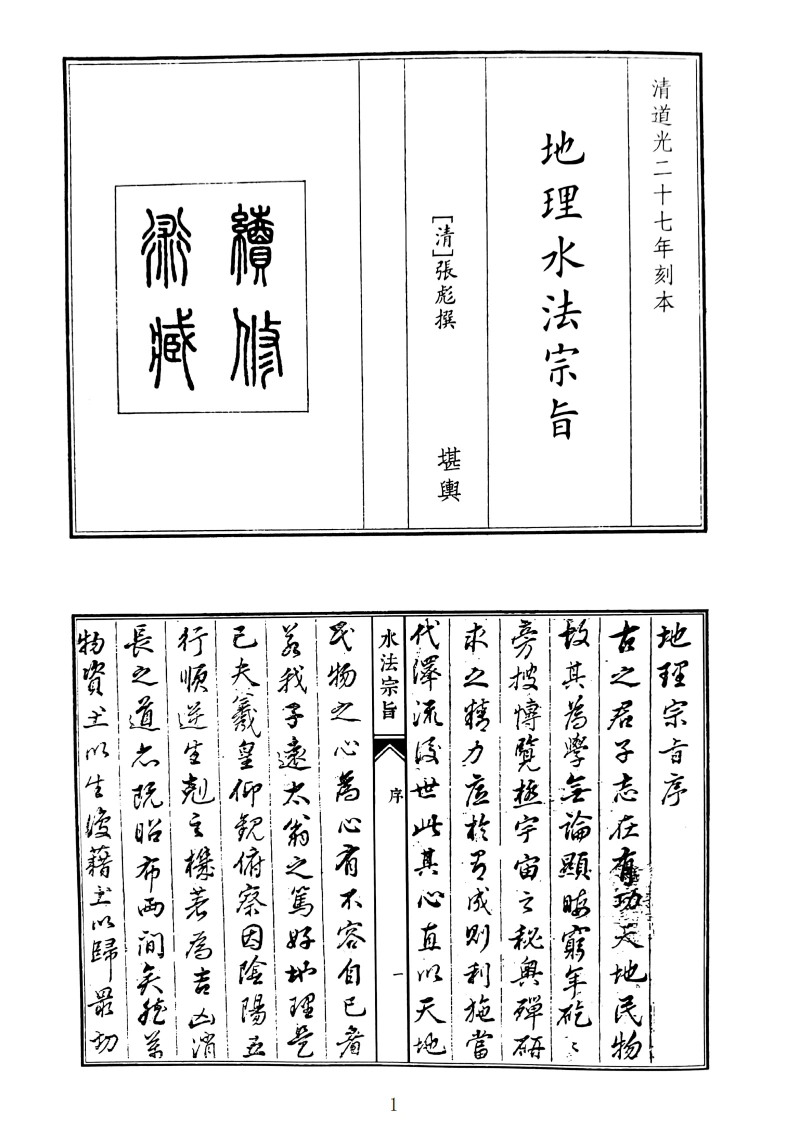 清道光二十七年刻本
地理水法宗旨
[清]張彪撰 堪輿
續修
術藏
地理宗旨序
古之君子志在有功天地民物
故其為學無論顯晦窮年矻〻
旁搜博覽極宇宙之秘奧殫研
求之精力底於有成則利施當
代澤流後世此其心直以天地
水法宗旨
序
一
民物之心為心有不容自已者
若我子遠太翁之篤好地理是
已夫羲皇仰觀俯察因陰陽五
行順逆生剋之機著為吉凶消
長之道亦既昭布兩間矣然萬
物資土以生復藉土以歸最切
1